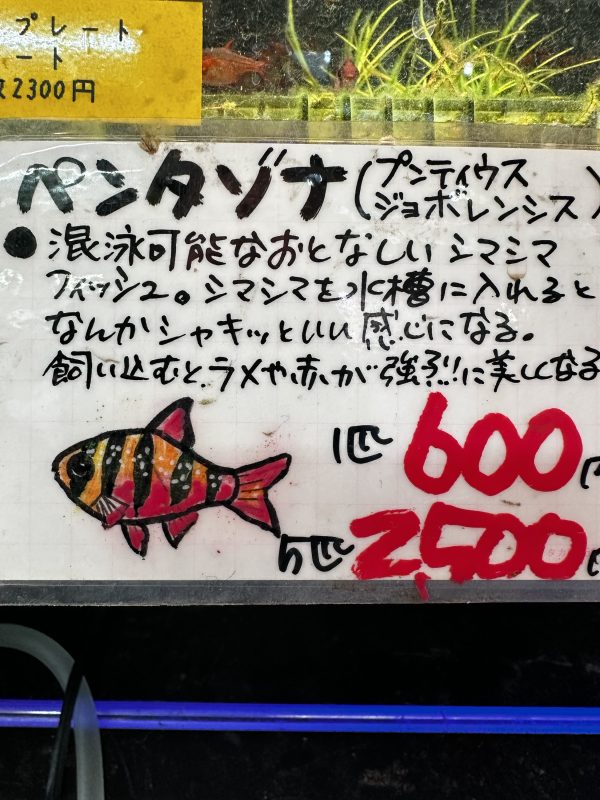 プレート
ート
2300円
ペンタゾナ(プンティウス
ジョホレンシス)
●混泳可能なおとなしいシマシマ
フィッシュ。シマシマを水槽に入れると
なんかシャキッといい感じになる。
飼い込むと、ラメや赤が強烈!!に美しくなる
1匹 600円
5匹 2,500円